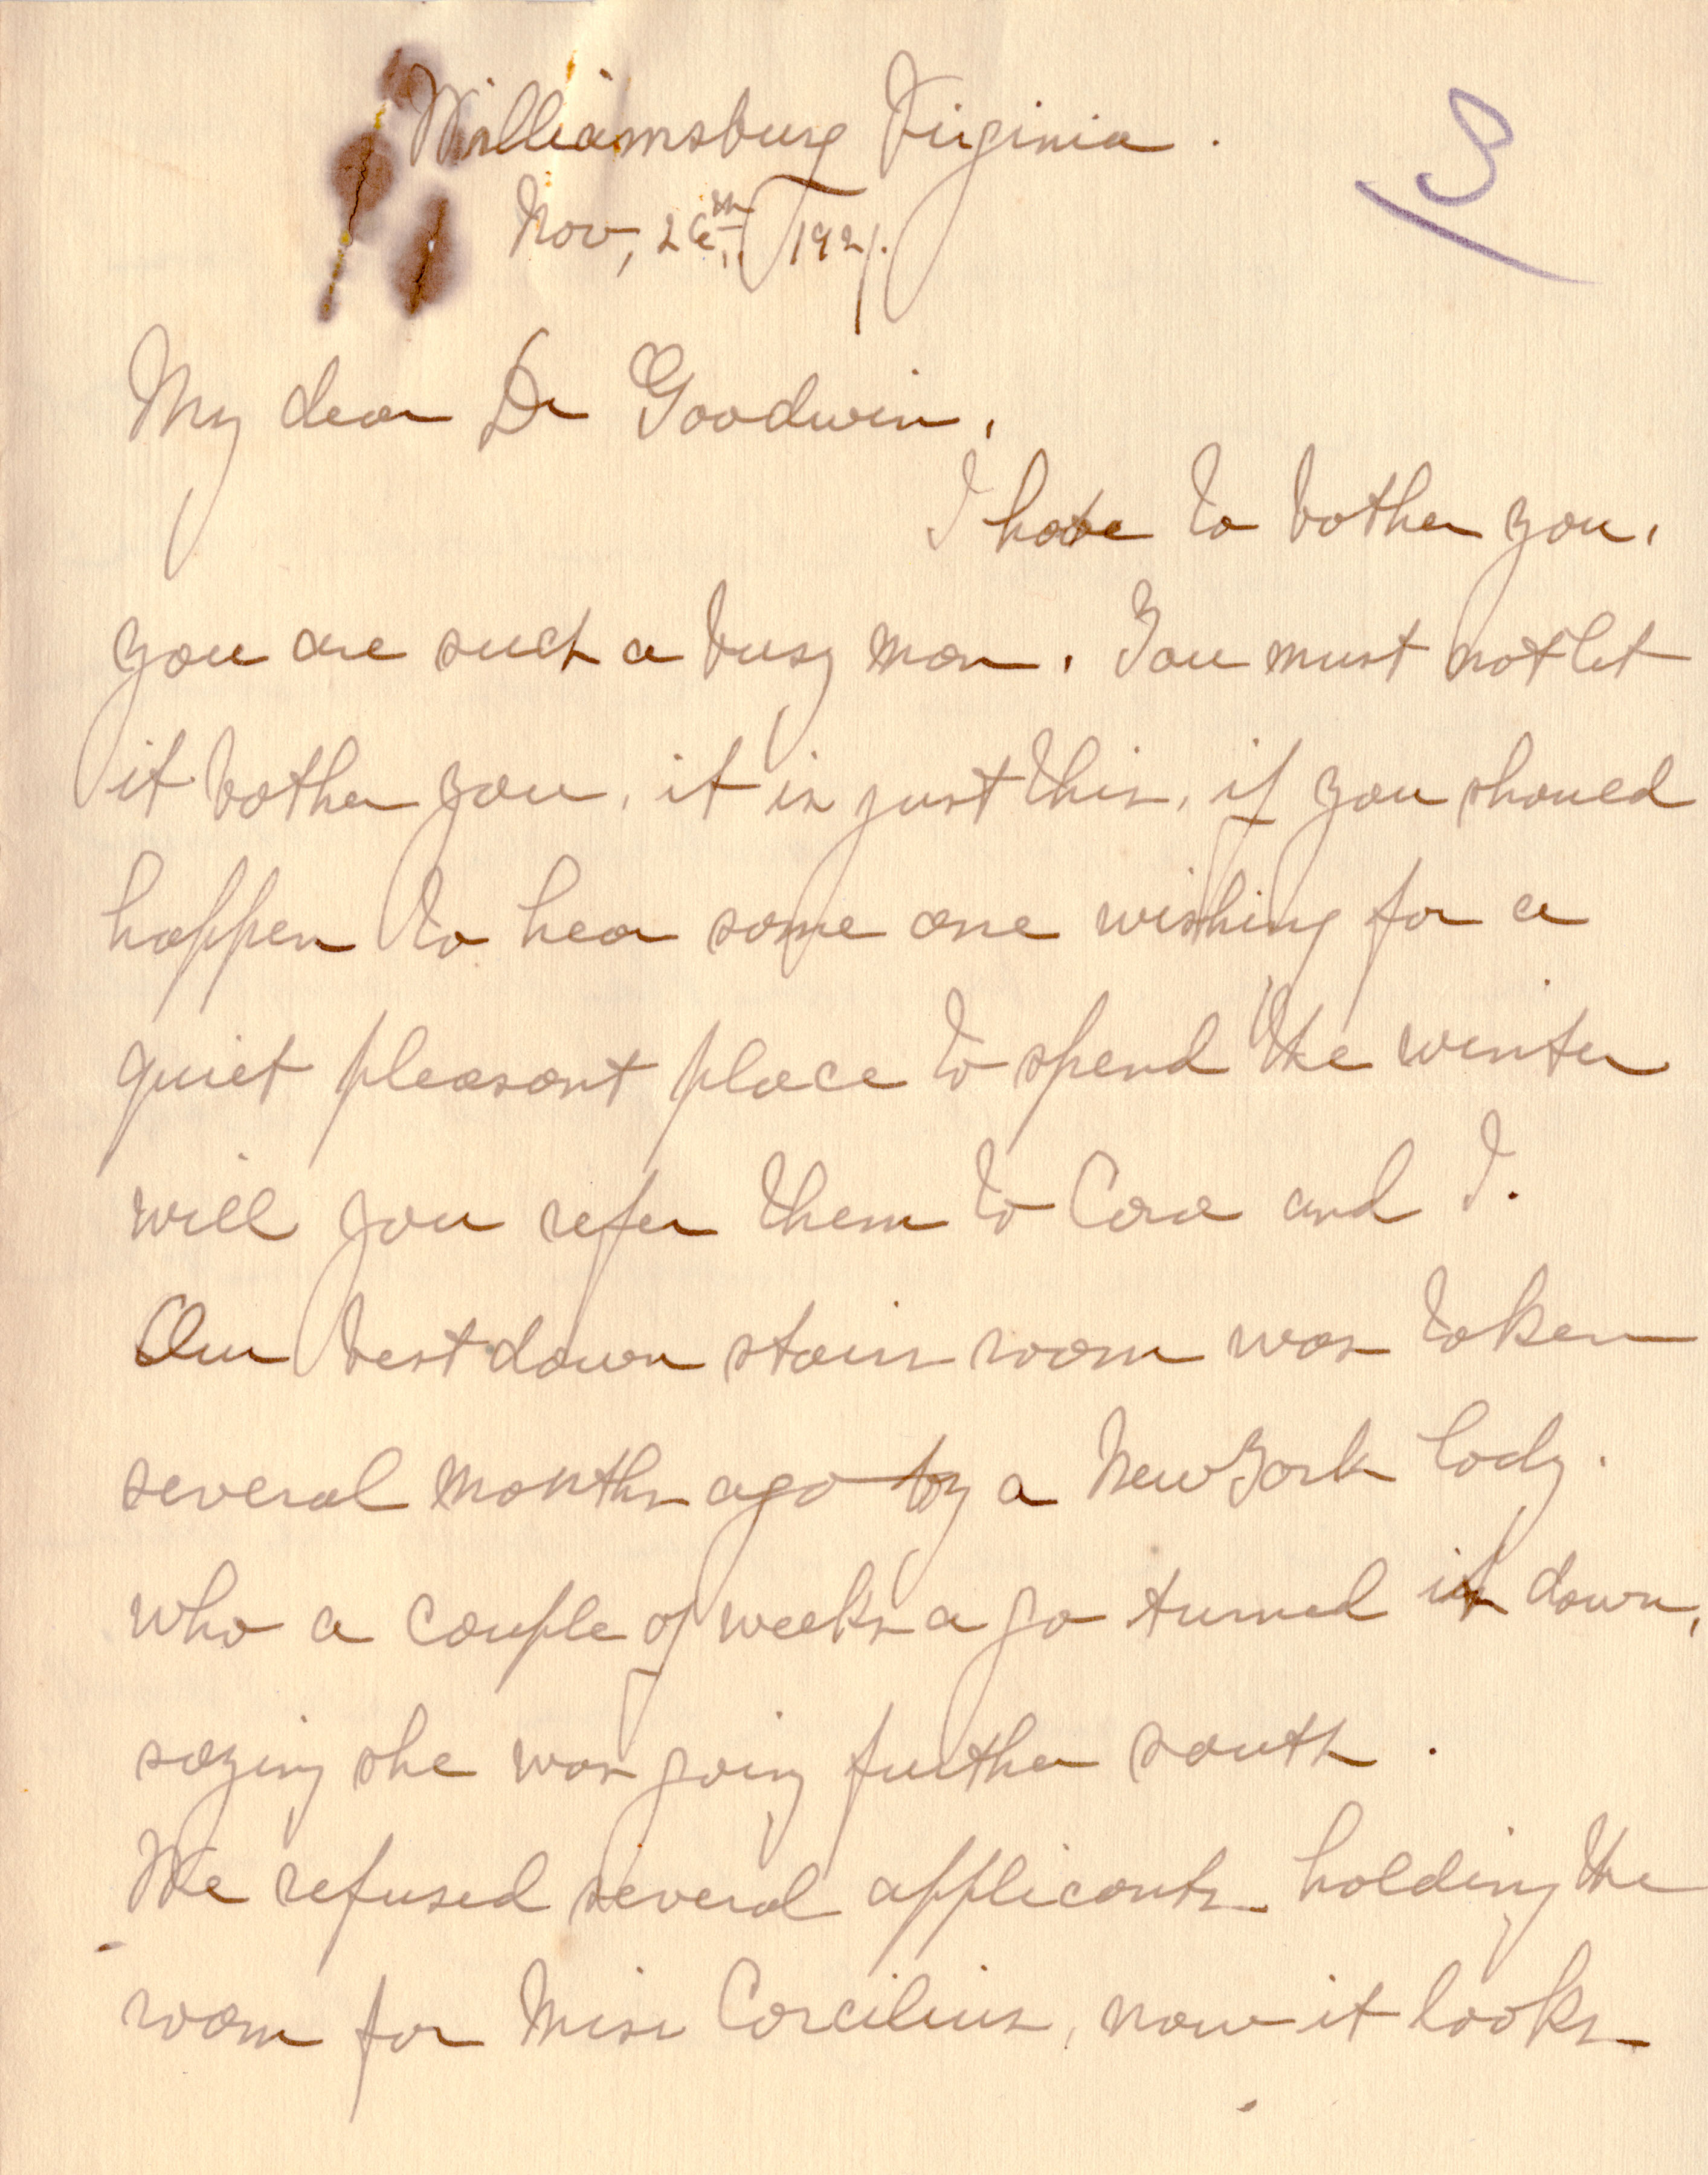 Williamsburg Virginia.
Nov, 26th, 1921.
My dear Dr Goodwin,
I hate to bother you,
you are such a busy man. You must not let
it bother you, it is just this, if you should
happen to hear some one wishing for a
quiet pleasant place to spend the winter
will you refer them to Cara and I.
Our best down stairs room was taken
several months ago by a New York lady.
who a couple of weeks ago turned it down,
saying she was going further south.
We refused several applicants holding the
room for Miss Corcilius, now it looks